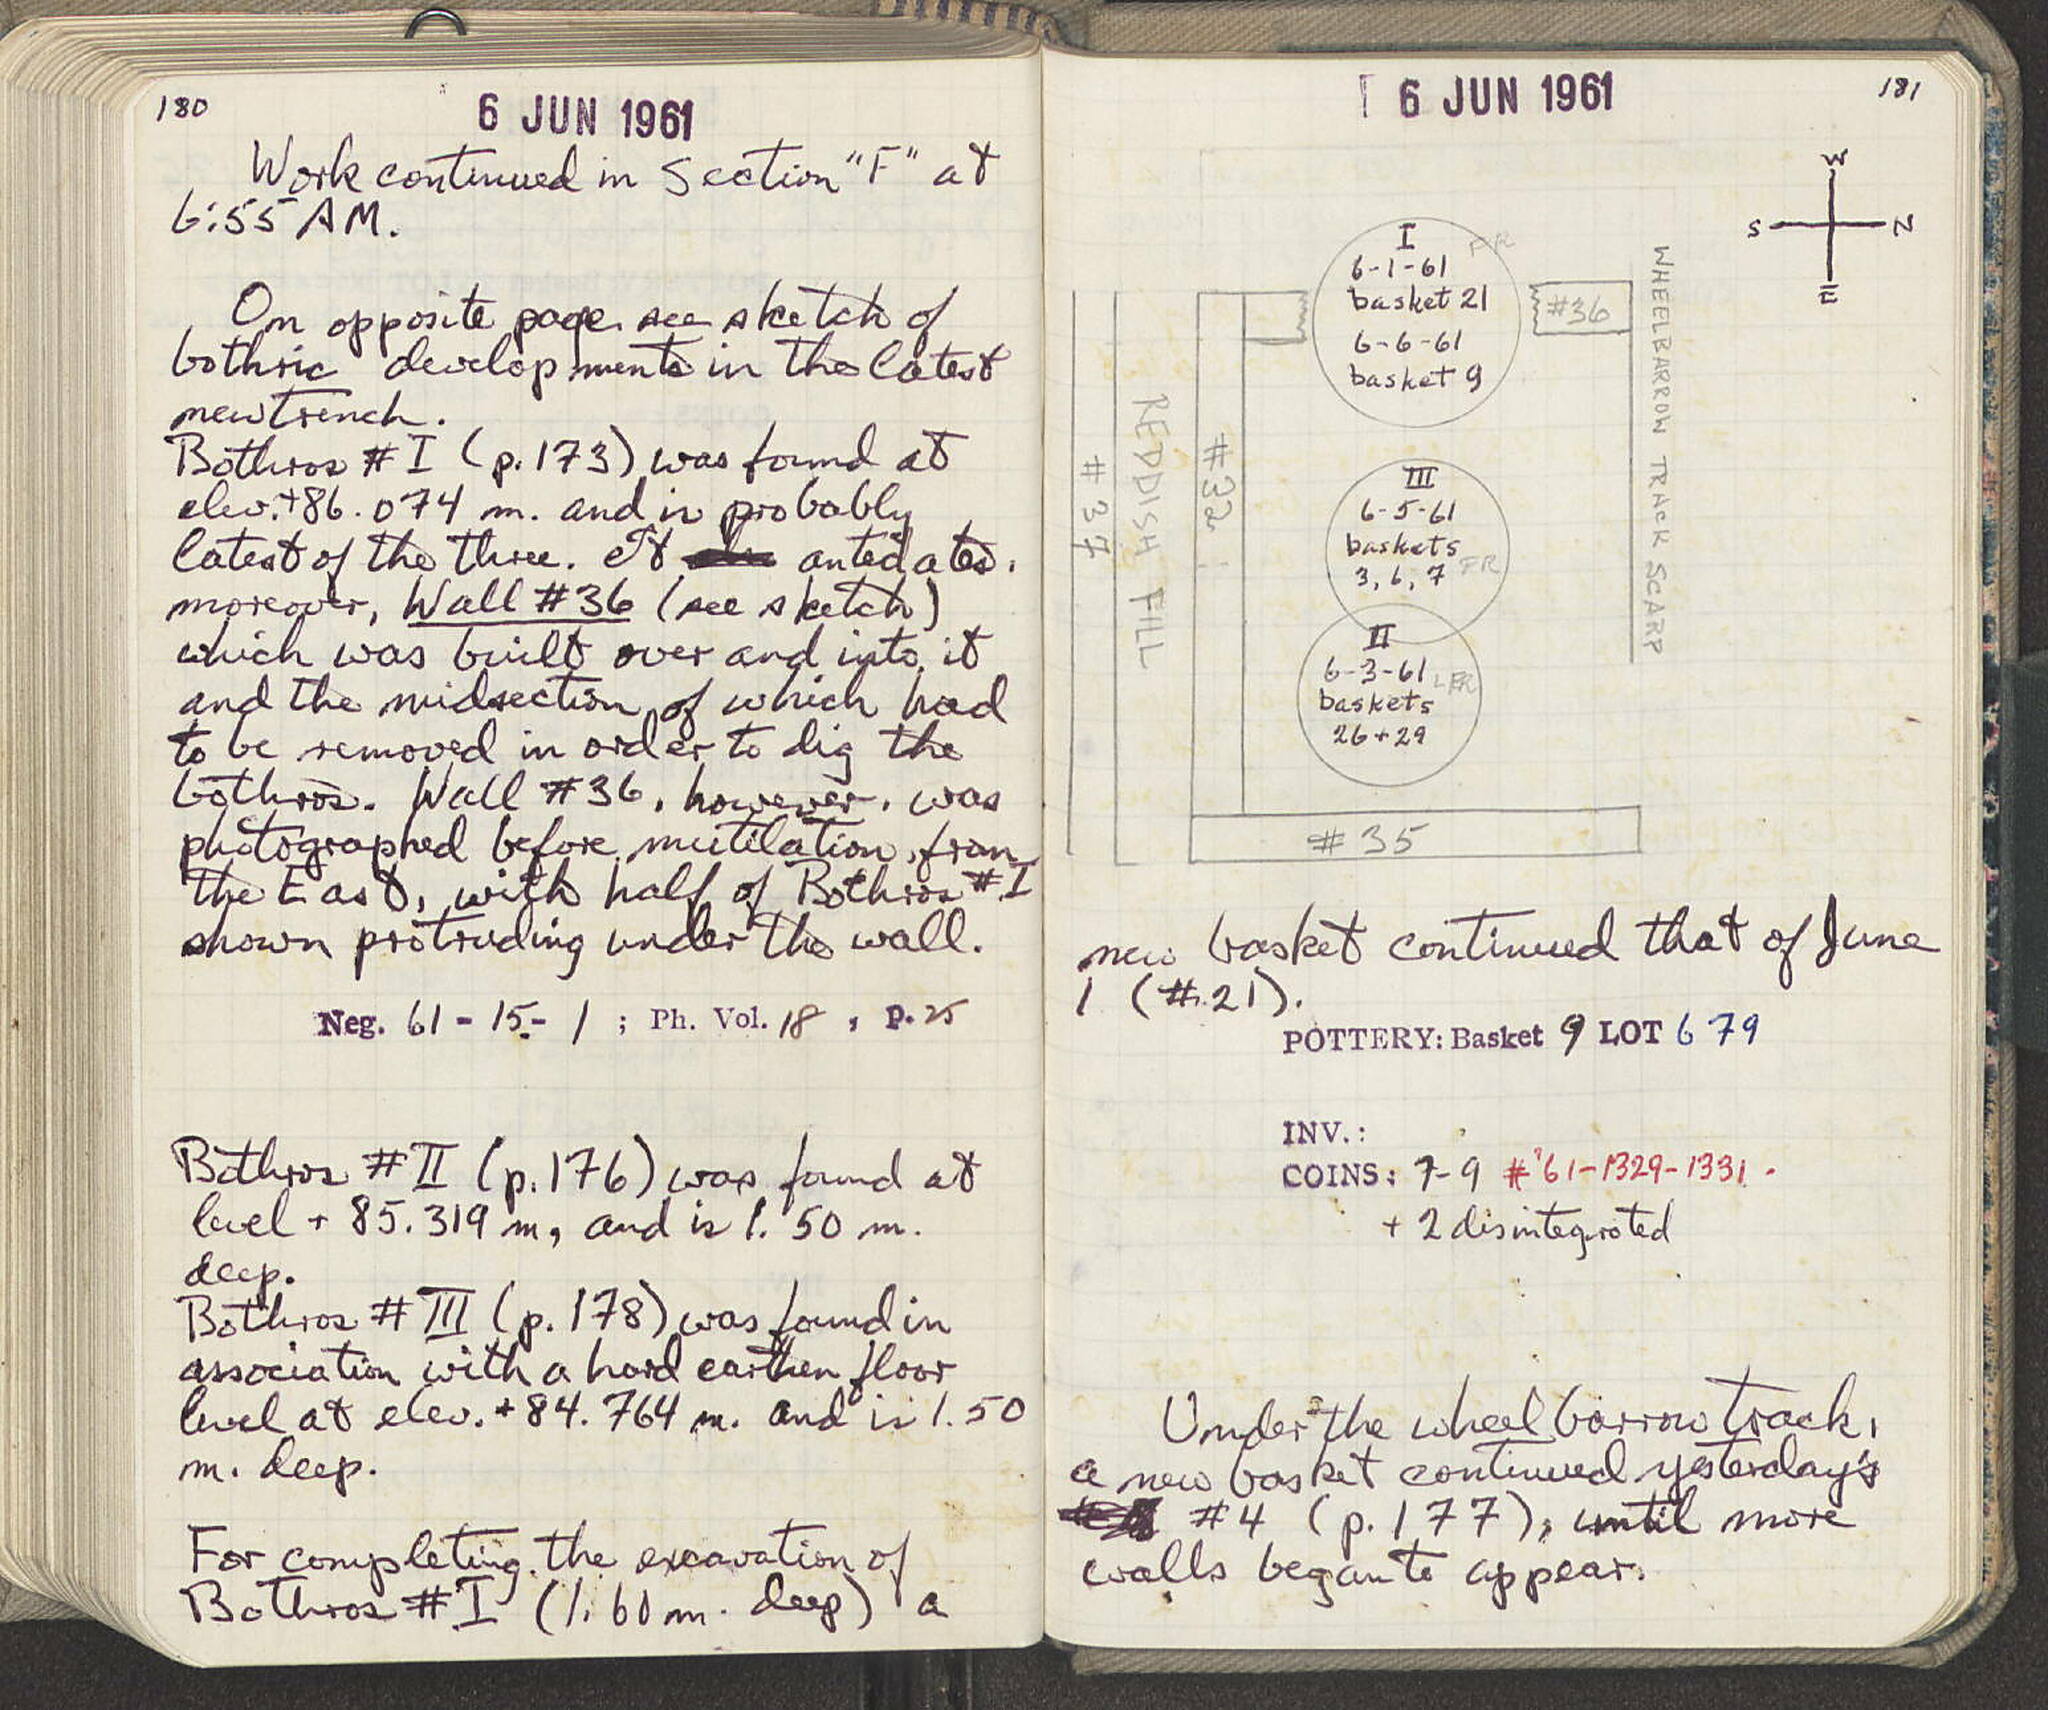 180
6 JUN 1961
Work continued in Section "F" at
6:55 AM.
On opposite page see sketch of
bothric developments in the latest
new trench.
Bothros # I (p. 173) was found at
elev. +86.074 m. and is probably
latest of the three. It antedates,
moreover, Wall #36 (see sketch)
which was built over and into it
and the midsection of which had
to be removed in order to dig the
bothros. Wall #36, however, was
photographed before mutilation, from
the East, with half of Bothros # I
shown protruding under the wall.
Neg. 61 - 15 - 1 ; Ph. Vol. 18 , p. 25
Bothros # II (p. 176) was found at
level + 85.319 m, and is 1.50 m.
deep.
Bothros # III (p. 178) was found in
association with a hard earthen floor
level at elev. +84.764 m. and is 1.50
m. deep.
For completing the excavation of
Bothros # I (1.60 m. deep) a
181
6 JUN 1961
W
S N
E
I
FR
6-1-61
basket 21
6-6-61
basket 9
#36
WHEELBARROW TRACK SCARP
#37
REDDISH FILL
#32
III
6-5-61
baskets
3, 6, 7 FR
II
6-3-61 LFR
baskets
26 + 29
#35
new basket continued that of June
1 (#21).
POTTERY: Basket 9 LOT 679
INV.:
COINS: 7-9 #'61-1329-1331.
+ 2 disintegrated
Under the wheelbarrow track,
a new basket continued yesterday's
#4 (p. 177), until more
walls began to appear.